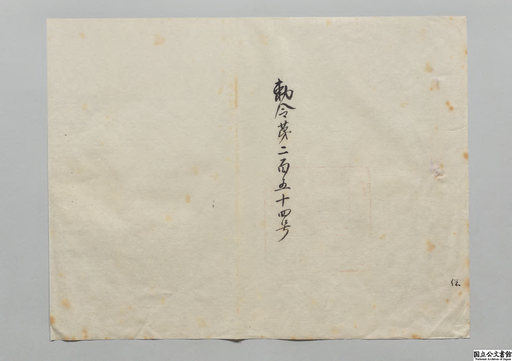 勅令第二百五十四号
国立公文書館
National Archives of Japan